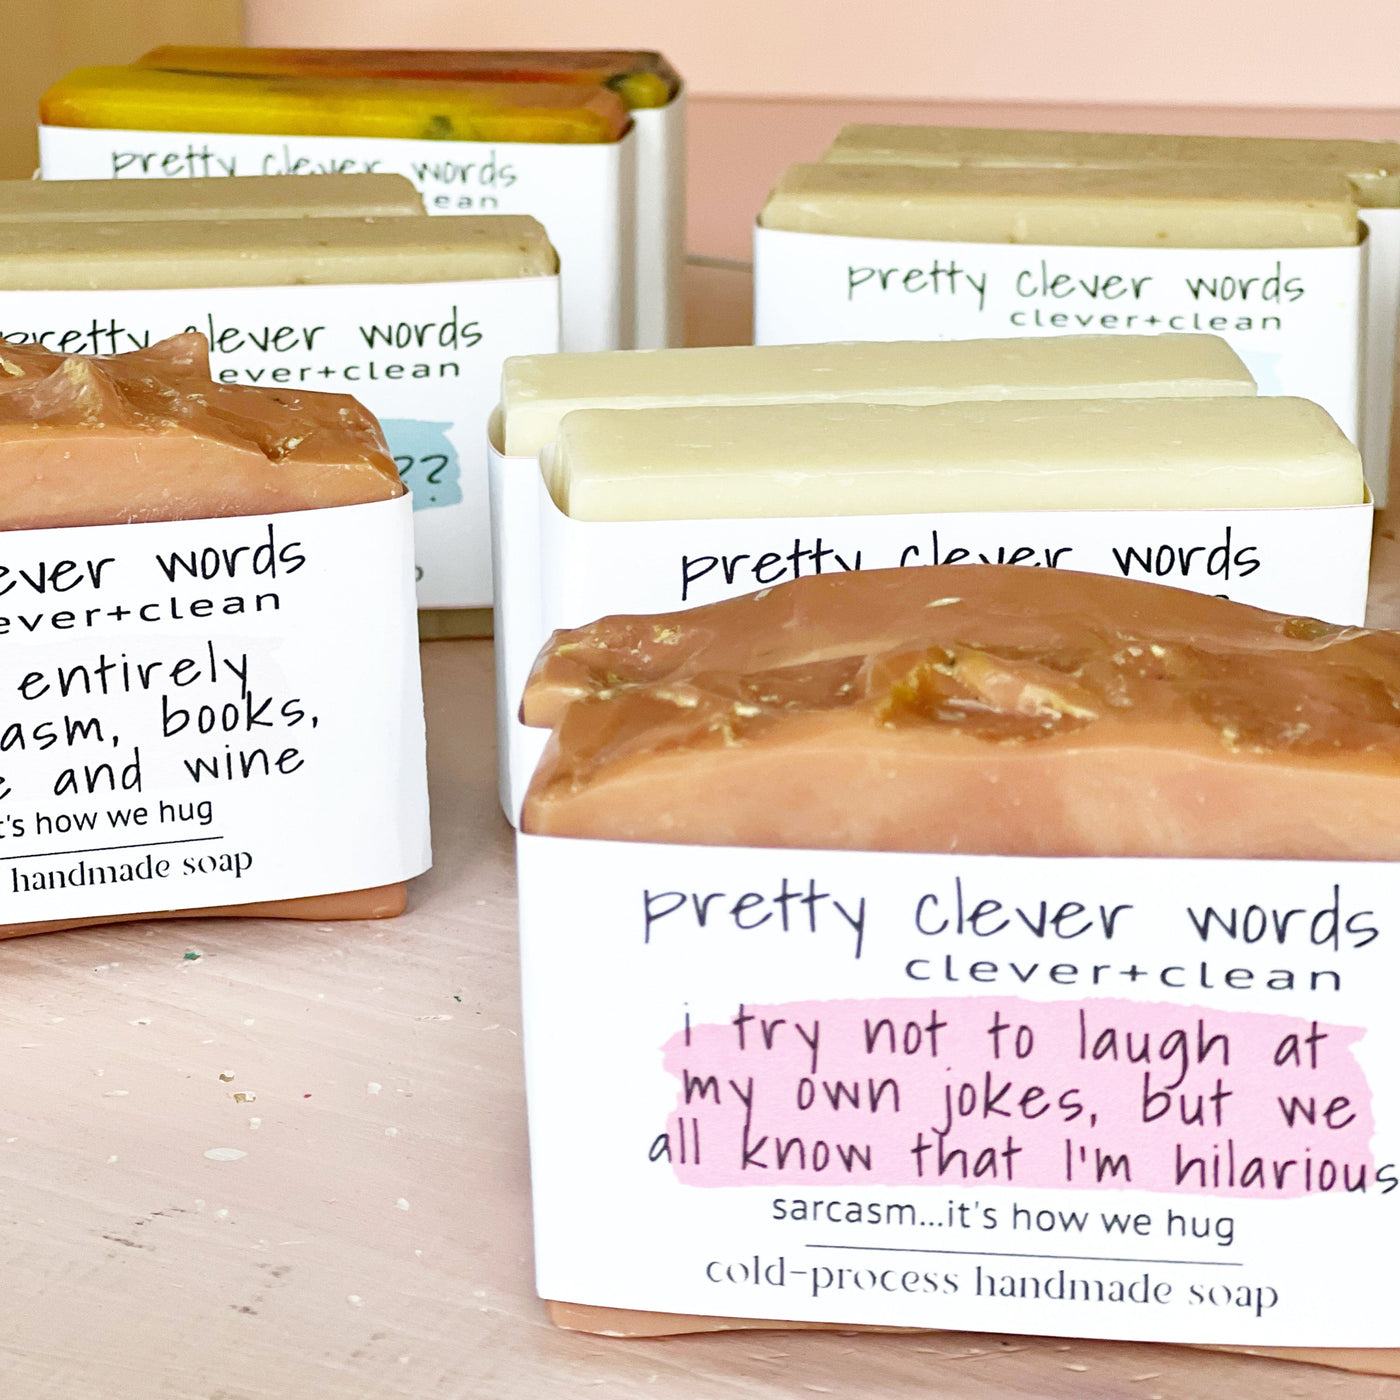 pretty clever words
ean
pretty clever words
clever+clean
pretty clever words
ever+clean
??
pretty clever words
ever words
ever+clean
entirely
asm, books,
and wine
t's how we hug
handmade soap
pretty clever words
clever+clean
i try not to laugh at
my own jokes, but we
all know that I'm hilarious
sarcasm...it's how we hug
cold-process handmade soap